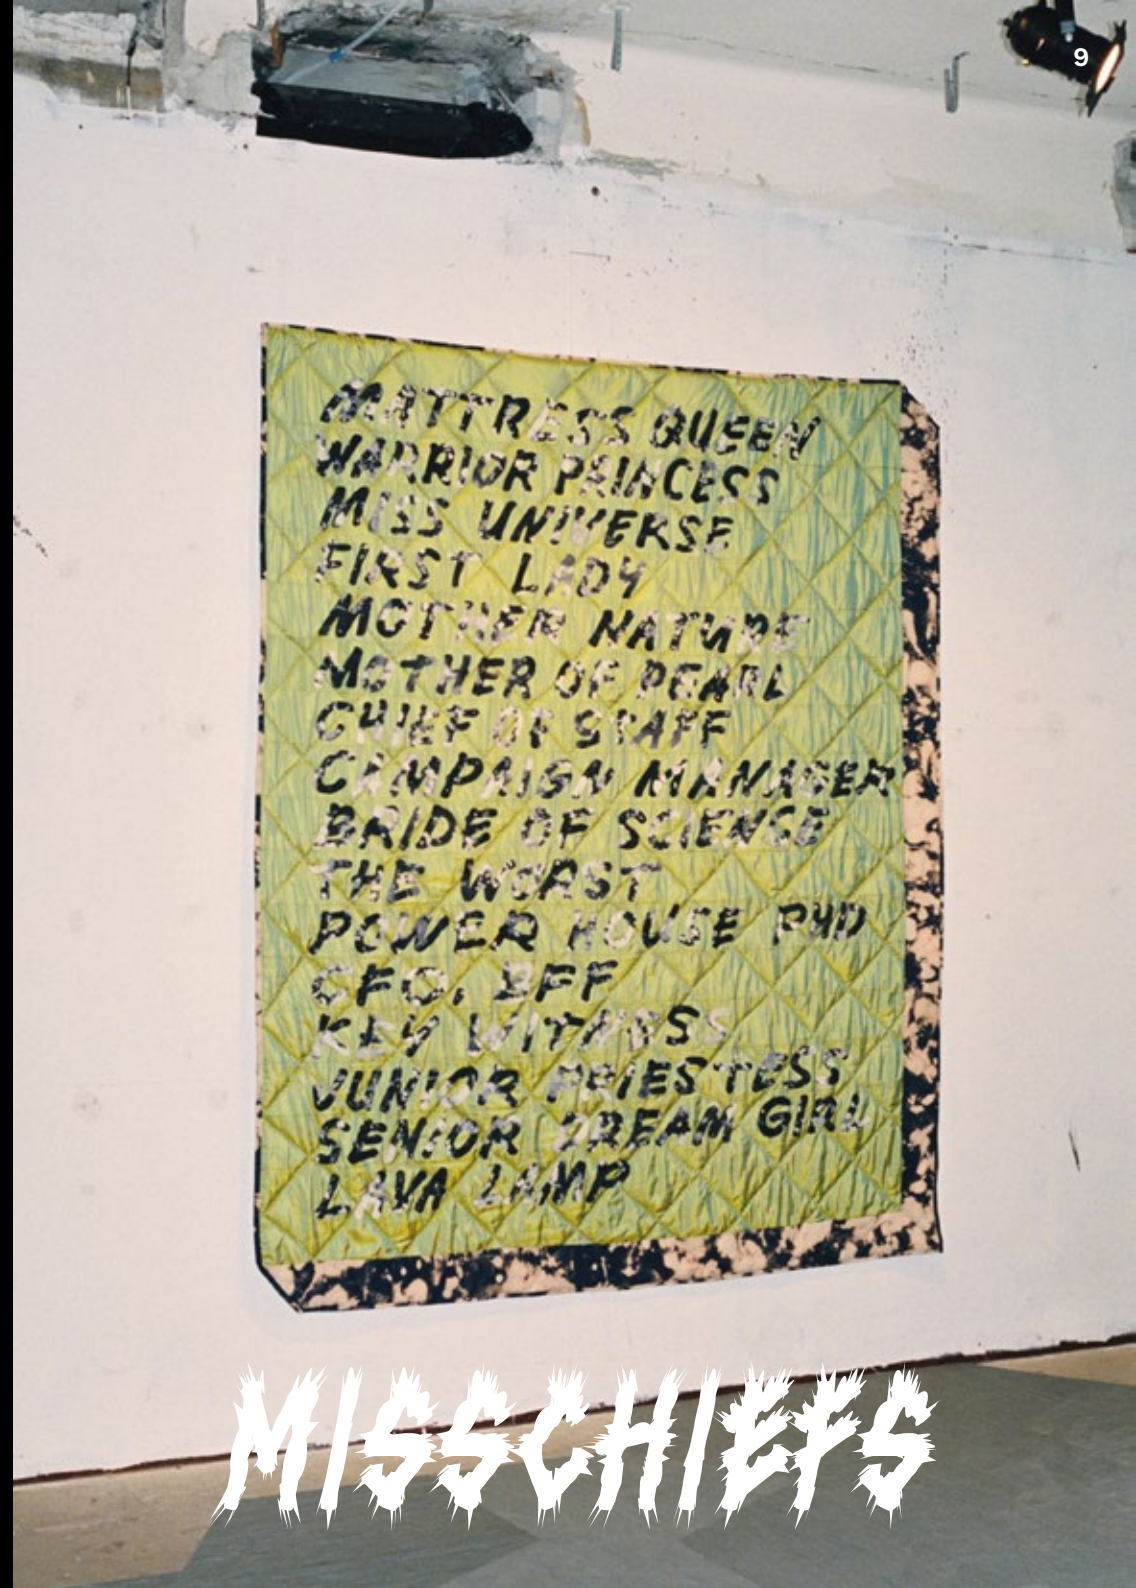 9
MATTRESS QUEEN
WARRIOR PRINCESS
MISS UNIVERSE
FIRST LADY
MOTHER NATURE
MOTHER OF PEARL
CHIEF OF STAFF
CAMPAIGN MANAGER
BRIDE OF SCIENCE
THE WORST
POWER HOUSE PHD
CFO, BFF
KEY WITNESS
JUNIOR PRIESTESS
SENIOR DREAM GIRL
LAVA LAMP
MISSCHIEFS